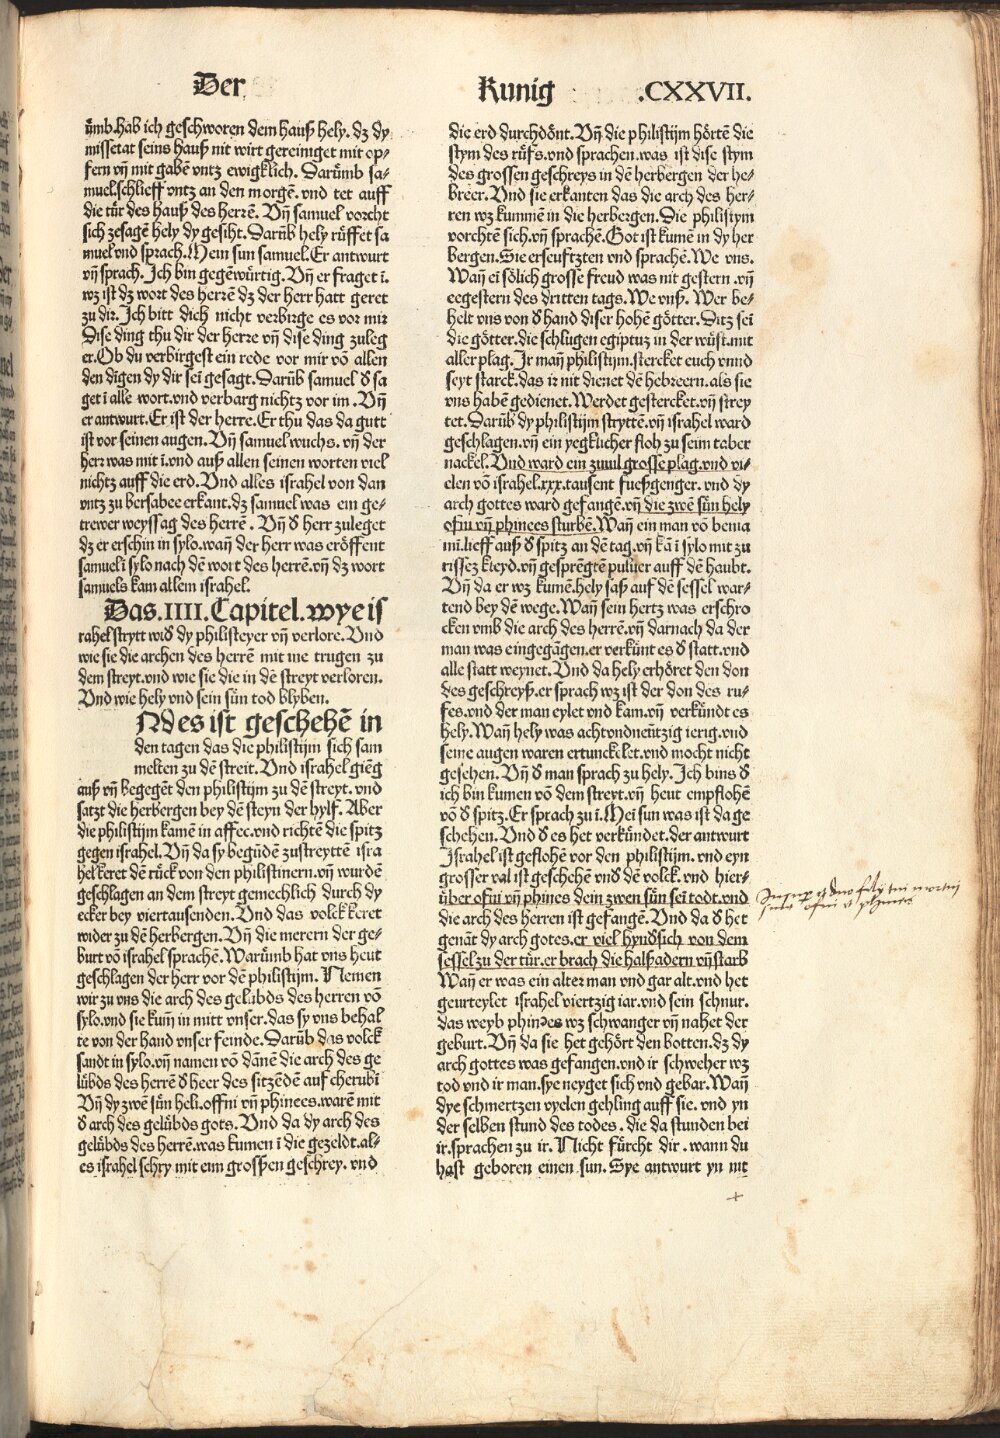 Der Kunig .CXXVII.
ůmb.hab ich geschworen dem hauß hely. dz dy
missetat seins hauß nit wirt gereiniget mit op-
fern vñ mit gabē vntz ewigklich. Darůmb sa-
muel.schlieff vntz an den morgē. vnd tet auff
die tür des hauß des herrē. Vñ samuel vorcht
sich zesagē hely dy gesiht. Darüb hely růffet sa
muel vnd sprach. Mein sun samuel. Er antwurt
vñ sprach. Ich bin gegēwürtig. Vñ er fraget ī.
wz ist dz wort des herrē dz der herr hatt geret
zu dir. Ich bitt dich nicht verbirge es vor mir
Dise ding thu dir der herre vñ dise ding zuleg
er. Ob du verbirgest ein rede vor mir vō allen
den dīgen dy dir seī gesagt. Darüb samuel ď sa
get ī alle wort. vnd verbarg nichtz vor im. Vñ
er antwurt. Er ist der herre. Er thu das da gutt
ist vor seinen augen. Vñ samuel wuchs. vñ der
herr was mit ī. vnd auß allen seinen worten viel
nichtz auff die erd. Vnd alles israhel von dan
vntz zu bersabee erkant. dz samuel was ein ge-
trewer weyssag des herrē. Vñ ď herr zuleget
dz er erschin in sylo. wañ der herr was eröffent
samuel ī sylo nach dē wort des herrē. vñ dz wort
samuels kam allem israhel.
Das .IIII. Capitel. wye is
rahel strytt wiď dy philisteyer vñ verlore. Vnd
wie sie die archen des herrē mit ine trugen zu
dem streyt. vnd wie sie die in dē streyt verloren.
Vnd wie hely vnd sein sün tod blyben.
Nd es ist geschehē in
den tagen das die philistijm sich sam
melten zu dē streit. Vnd israhel giēg
auß vñ begegēt den philistijm zu dē streyt. vnd
satzt die herbergen bey dē steyn der hylf. Aber
die philistijm kamē in affec. vnd richtē die spitz
gegen israhel. Vñ da sy begūdē zustreyttē isra
hel keret dē rück von den philistinern. vñ wurdē
geschlagen an dem streyt gemechlich durch dy
ecker bey viertausenden. Vnd das volck keret
wider zu dē herbergen. Vñ die merern der ge-
burt vō israhel sprachē. Warůmb hat vns heut
geschlagen der herr vor dē philistijm. Nemen
wir zu vns die arch des gelübds des herren vō
sylo. vnd sie kum̄ in mitt vnser. das sy vns behal
te von der hand vnser feinde. Darüb das volck
sandt in sylo. vñ namen vō dānē die arch des ge
lübds des herrē ď heer des sitzēdē auf cherubī
Vñ dy zwē sün heli. offni vñ phinees. warē mit
ď arch des gelübds gots. Vnd da dy arch des
gelübds des herrē. was kumen ī die gezeldt. al-
es israhel schry mit eim grossen geschrey. vnd
die erd durchdönt. Vñ die philistijm hörtē die
stym des růfs. vnd sprachen. was ist dise stym
des grossen geschreys in dē herbergen der he-
breer. Vnd sie erkanten das die arch des her-
ren wz kummē in die herbergen. Die philistijm
vorchtē sich. vñ sprachē. Got ist kumē in dy her
bergen. Sie erseufftzten vnd sprachē. We vns.
Wañ eī sölich grosse freud was nit gestern. vñ
eegestern des dritten tags. We vnß. Wer be-
helt vns von ď hand diser hohē götter. Ditz seī
die götter. die schlugen egiptuz in der wüst. mit
aller plag. Ir mañ philistijm. stercket euch vnnd
seyt starck. das ir nit dienet dē hebreern. als sie
vns habē gedienet. Werdet gestercket. vñ strey
tet. Darüb dy philistijm stryttē. vñ israhel ward
geschlagen. vñ ein yegklicher floh zu seim taber
nackel. Vnd ward ein zuuil grosse plag. vnd vi-
elen vō israhel. xxx. tausent fueßgenger. vnd dy
arch gottes ward gefangē. vñ die zwē sün hely
ofni vñ phinees sturbē. Wañ ein man vō benia
mī. lieff auß ď spitz an dē tag. vñ kā ī sylo mit zu
rissez kleyd. vñ gesprēgtē puluer auff dē haubt.
Vñ da er wz kumē. hely saß auf dē sessel war-
tend bey dē wege. Wañ sein hertz was erschro
cken vmb die arch des herrē. vñ darnach da der
man was eingegāgen. er verkünt es ď statt. vnd
alle statt weynet. Vnd da hely erhöret den don
des geschreyß. er sprach wz ist der don des ru-
fes. vnd der man eylet vnd kam. vñ verkündt es
hely. Wañ hely was acht vnd neüntzig ierig. vnd
seine augen waren ertuncklet. vnd mocht nicht
gesehen. Vñ ď man sprach zu hely. Ich bins ď
ich bin kumen vō dem streyt. vñ heut empflohē
vō ď spitz. Er sprach zu ī. Meī sun was ist da ge
schehen. Vnd ď es het verkündet. der antwurt
Israhel ist geflohē vor den philistijm. vnd eyn
grosser val ist geschehē vnď dē volck. vnd hier-
über ofni vñ phines dein zwen sün seī todt. vnd
die arch des herren ist gefangē. Vnd da ď het
genāt dy arch gotes. er viel hynďsich von dem
sessel zu der tür. er brach die halßadern vñ starb
Wañ er was ein alter man vnd gar alt. vnd het
geurteylet israhel viertzig iar. vnd sein schnur.
das weyb phinees wz schwanger vñ nahet der
geburt. Vñ da sie het gehört den botten. dz dy
arch gottes was gefangen. vnd ir schweher wz
tod vnd ir man. sye neyget sich vnd gebar. Wañ
dye schmertzen vyelen gehling auff sie. vnd yn
der selben stund des todes. die da stunden bei
ir. sprachen zu ir. Nicht fürcht dir. wann du
hast geboren einen sun. Sye antwurt yn nit
ofni